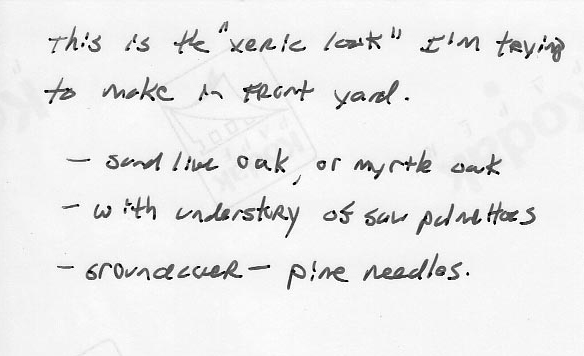 This is the "xeric look" I'm trying
to make in front yard.
- sand live oak, or myrtle oak
- with understory of saw palmettoes
- groundcover - pine needles.